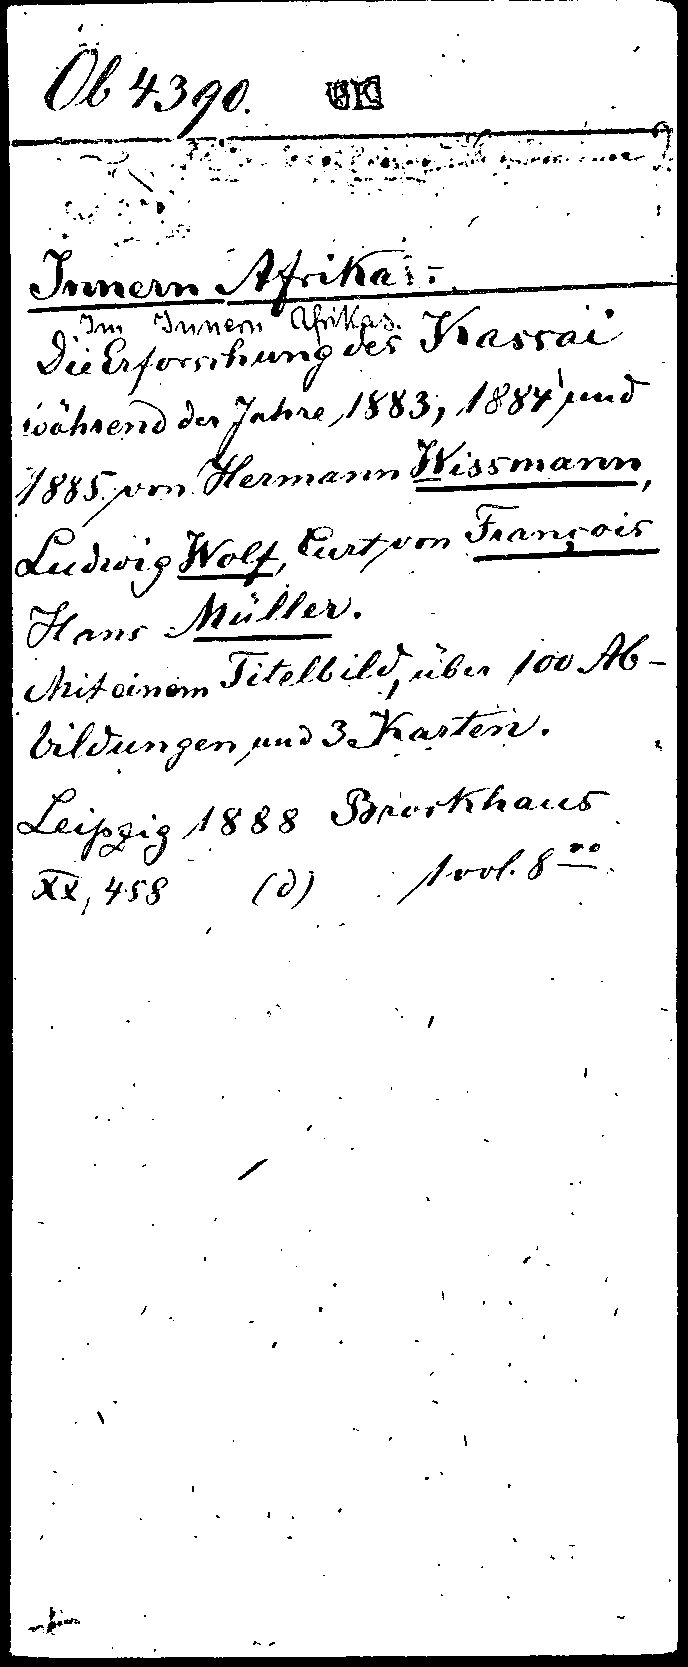 Öb 4390. UK
Innern Afrikas:
Im Innern Afrikas.
Die Erforschung des Kassai
während der Jahre 1883, 1884 und
1885 von Hermann Wissmann,
Ludwig Wolf, Curt von François
Hans Müller.
Mit einem Titelbild, über 100 Ab-
bildungen und 3 Karten.
Leipzig 1888 Brockhaus
XX, 458 (d) 1 vol. 8vo.